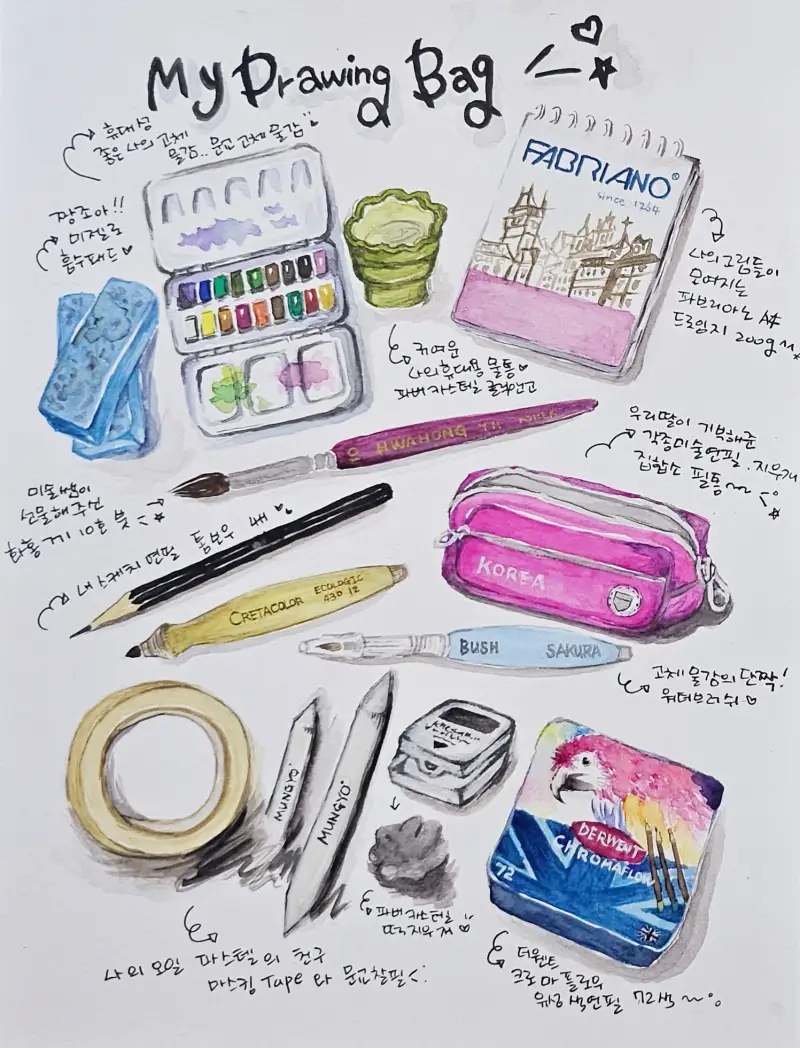 My Drawing Bag
휴대성
좋은 나의 고체
물감.. 문교 고체 물감
짱조아!!
미젤로
흡수패드
FABRIANO®
since 1264
나의 그림들이
모여지는
파브리아노 A4
드로잉지 200g
귀여운
나의 휴대용 물통
파버카스텔
우리딸이 기부해준
각종 미술연필. 지우개
집합소 필통~
10 HWAHONG 711
미술쌤이
선물해주신
화홍 10호 붓
내 스케치 연필 톰보우 4B
KOREA
CRETACOLOR ECOLOGIC
430 12
BUSH SAKURA
고체물감의 단짝!
워터브러쉬
MUNGYO
MUNGYO
DERWENT
CHROMAFLOW
72
파버카스텔
떡지우개
나의 오일 파스텔의 친구
마스킹 Tape 와 문교찰필
더웬트
크로마플로우
유성색연필 72색~